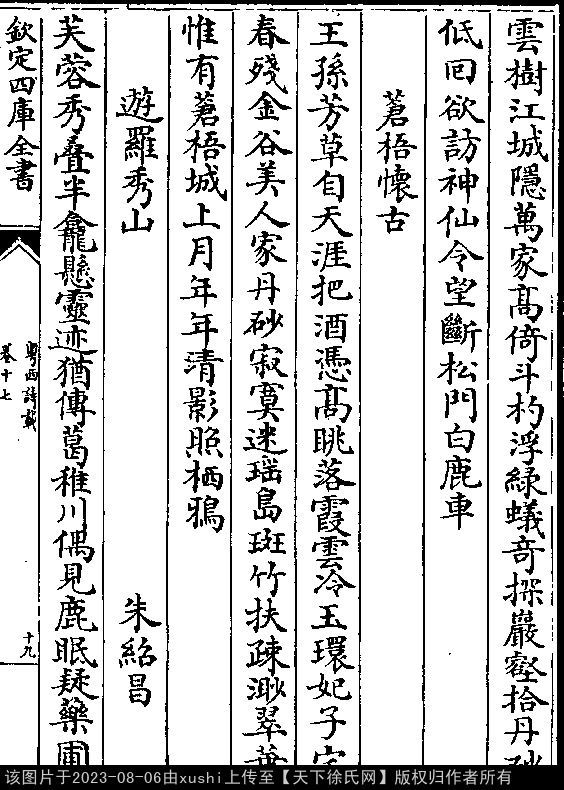 雲樹江城隱萬家髙倚斗杓浮綠蟻竒探巖壑拾丹砂
低回欲訪神仙令望斷松門白鹿車
蒼梧懷古
王孫芳草自天涯把酒憑髙眺落霞雲冷玉環妃子宅
春殘金谷美人家丹砂寂寞迷瑶島斑竹扶疎渺翠華
惟有蒼梧城上月年年清影照栖鴉
遊羅秀山 朱紹昌
芙蓉秀疊半龕懸靈迹猶傳葛稚川偶見鹿眠疑藥圃
欽定四庫全書
粤西詩載
卷十七
十九
该图片于2023-08-06由xushi上传至【天下徐氏网】版权归作者所有